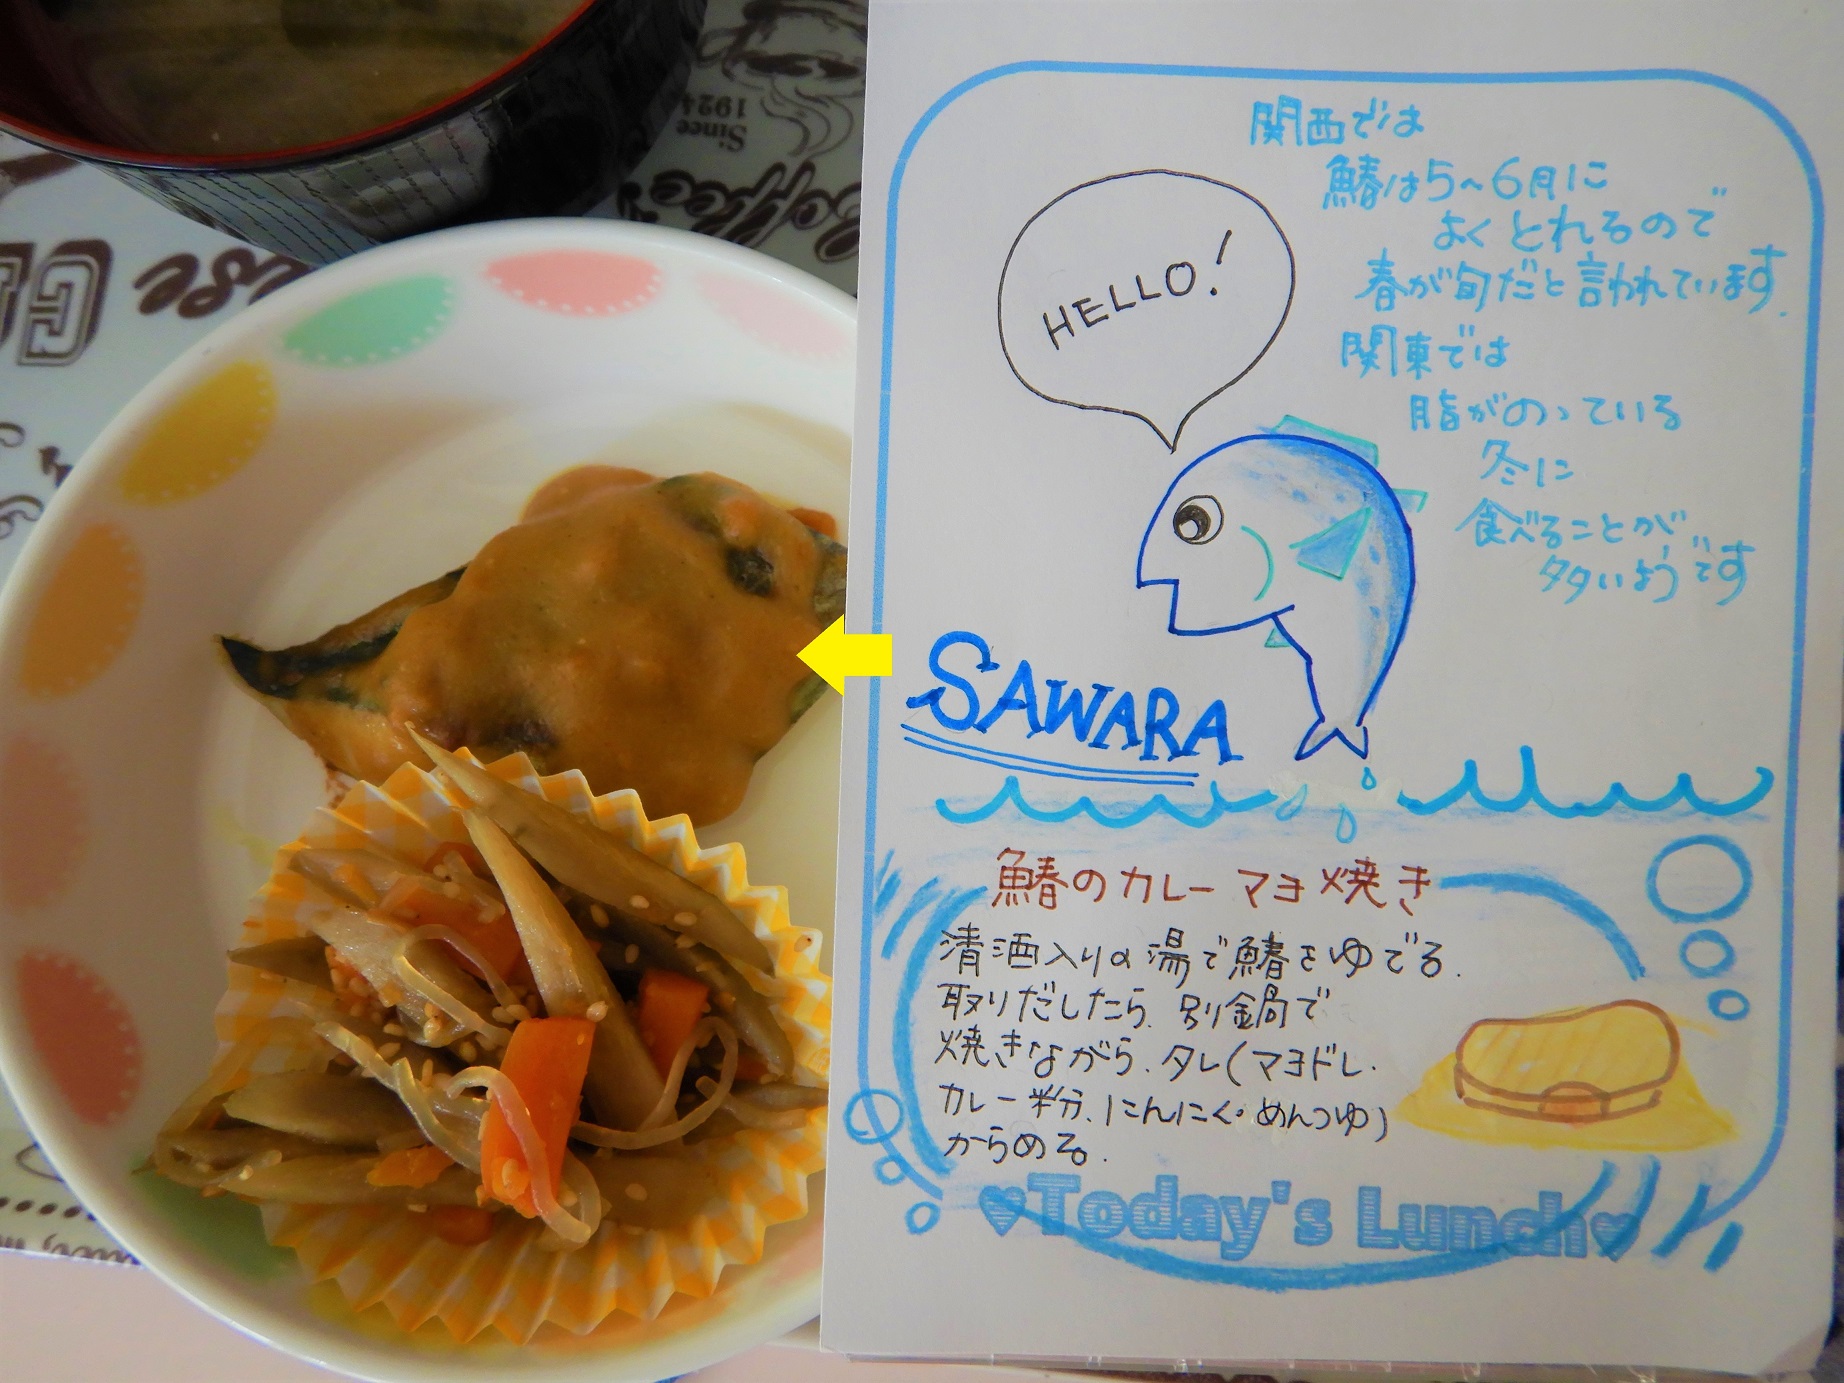 Since
1924
Coffee
関西では
鰆は5~6月に
よくとれるので
春が旬だと言われています.
関東では
脂がのっている
冬に
食べることが
多いようです
HELLO!
SAWARA
鰆のカレーマヨ焼き
清酒入りの湯で鰆をゆでる.
取りだしたら、別鍋で
焼きながら、タレ(マヨドレ・
カレー粉、にんにく・めんつゆ)
からめる.
♥Today's Lunch♥